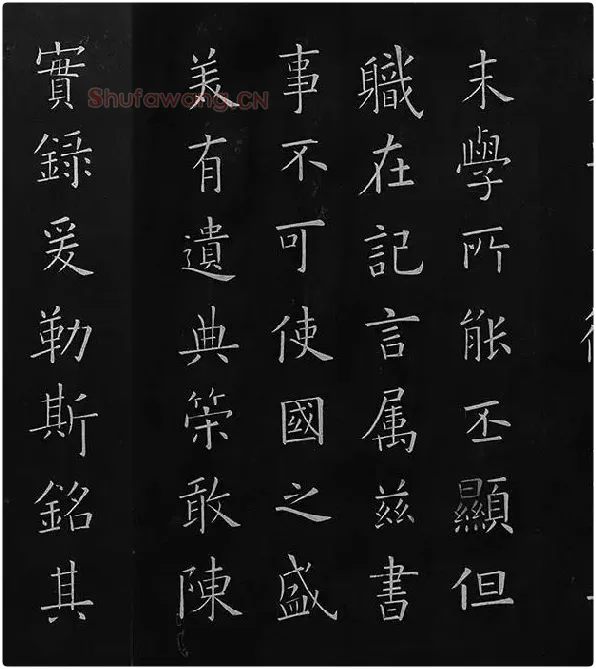 末學所能丕顯但
職在記言属兹書
事不可使國之盛
美有遺典策敢陳
實録爰勒斯銘其
Shufawang.CN